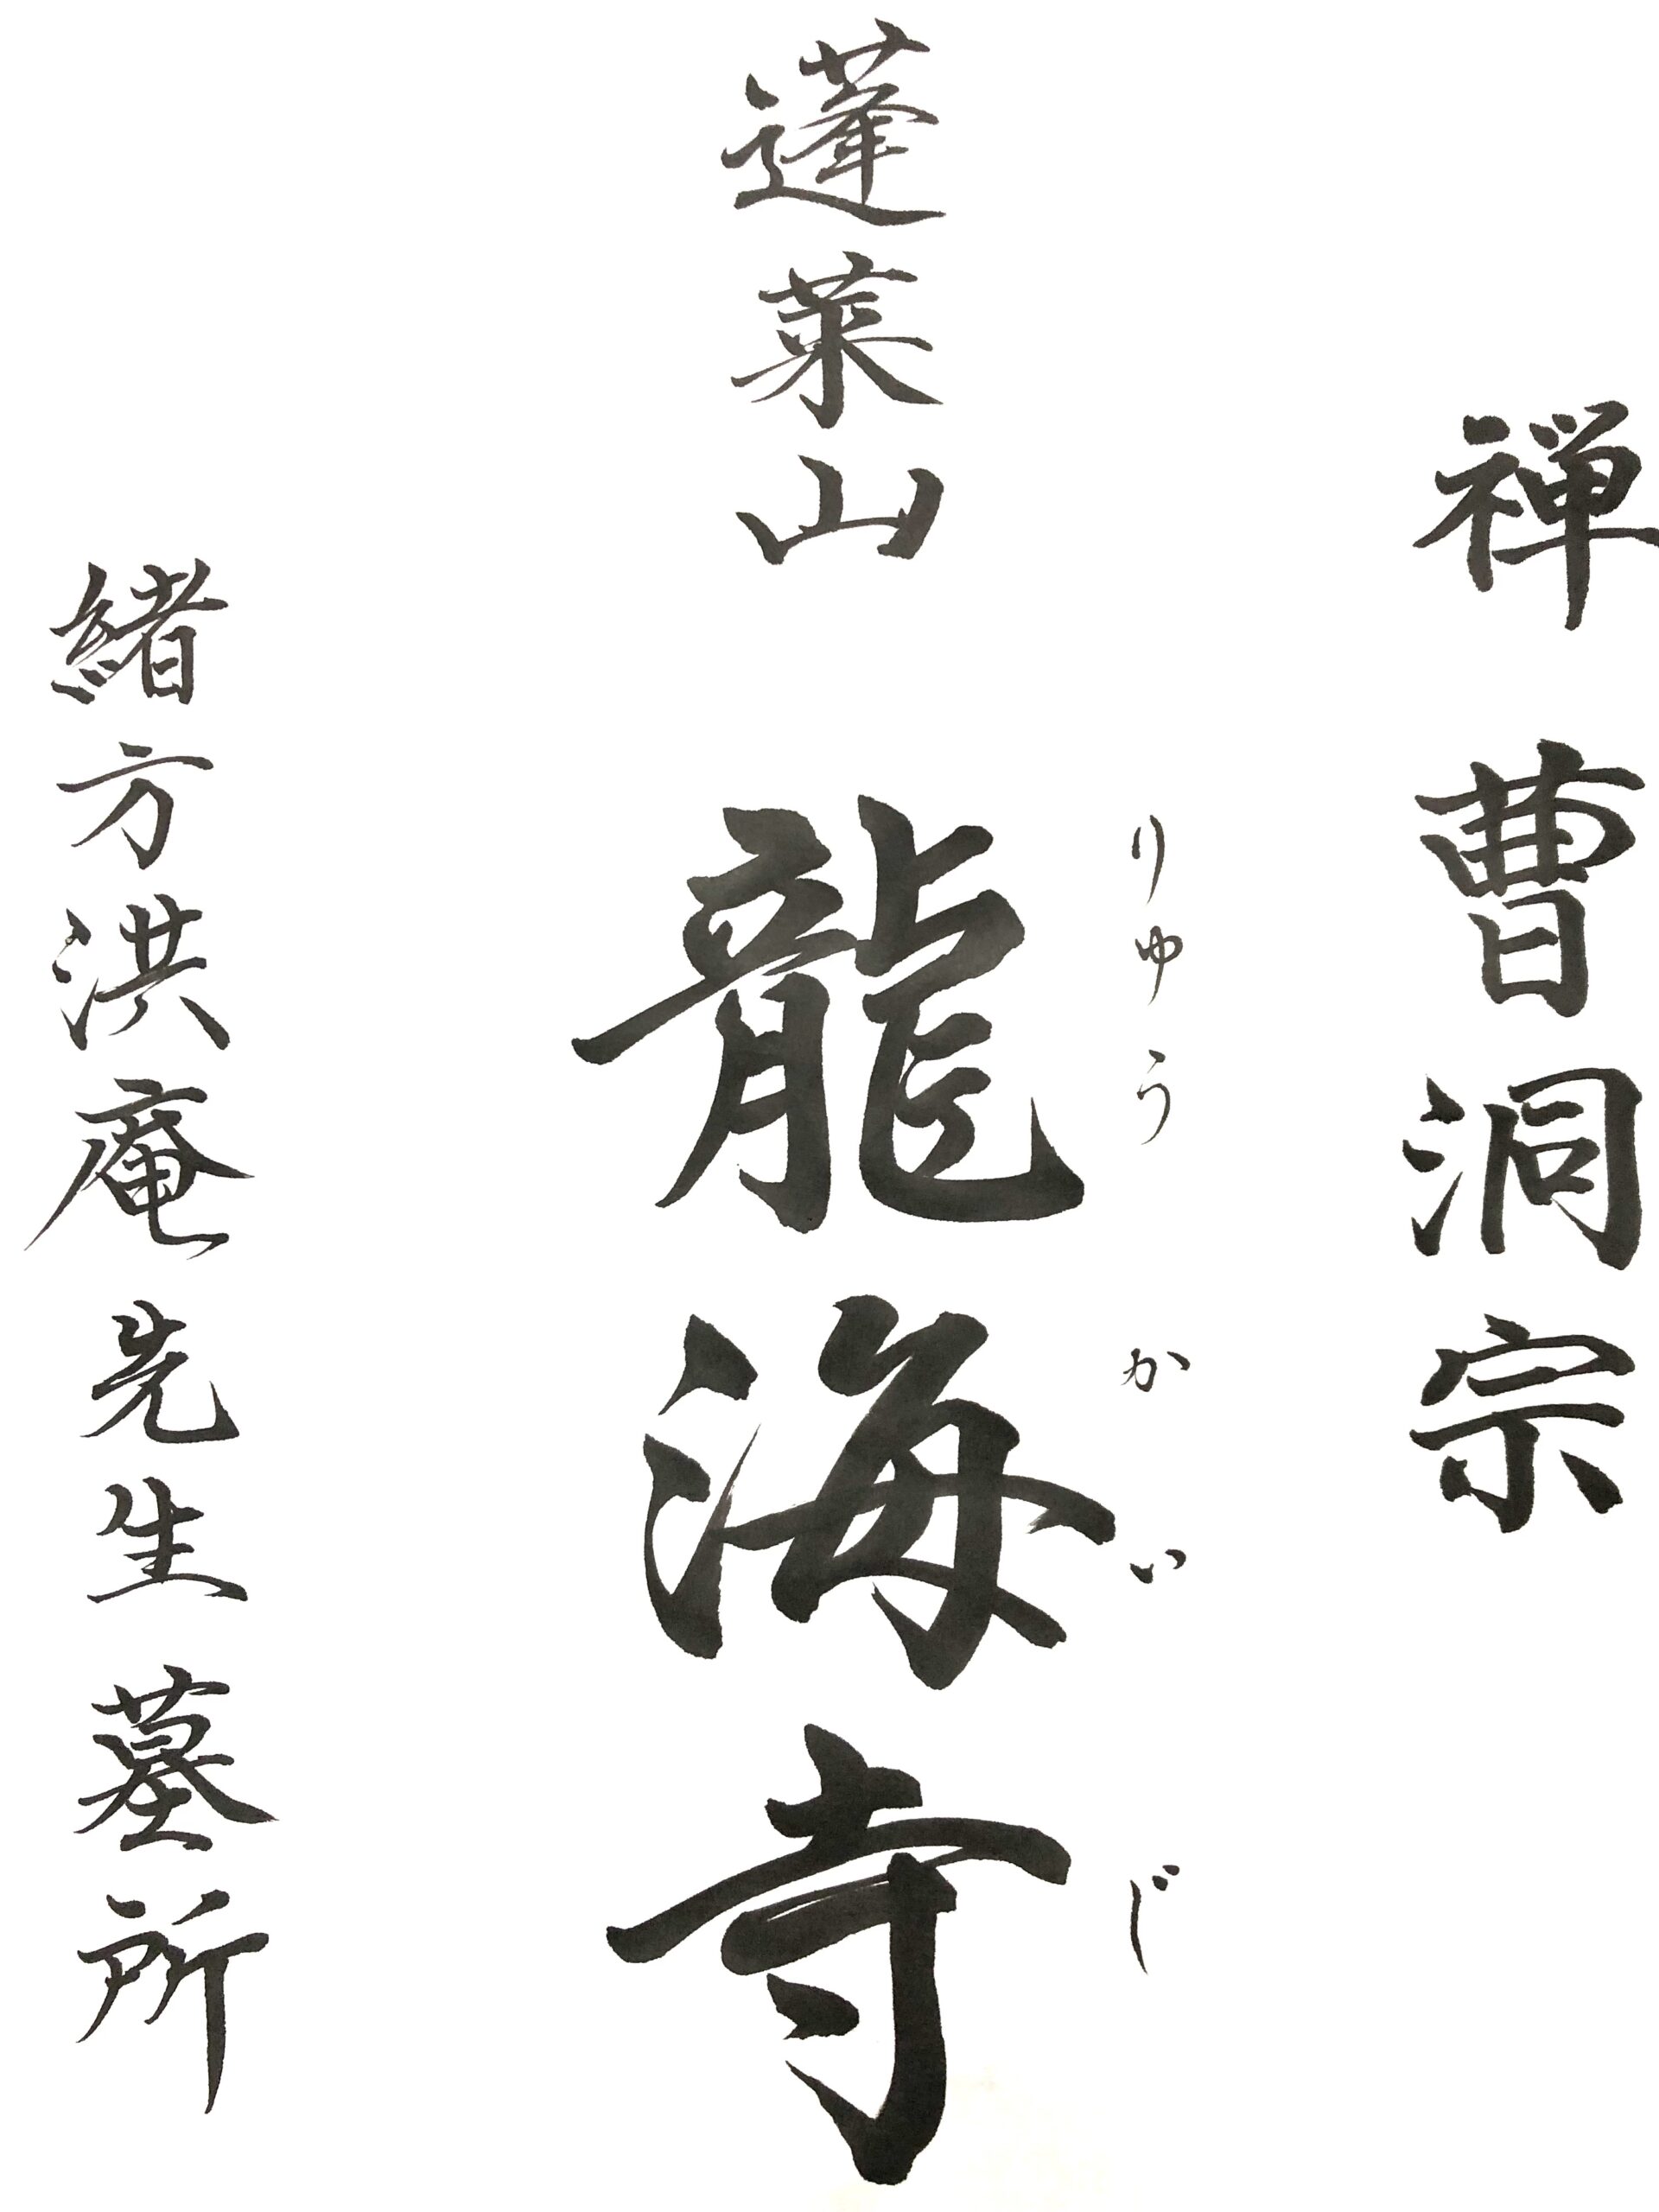 禅 曹洞宗
蓬莱山 龍海寺
りゅうかいじ
緒方洪庵先生墓所